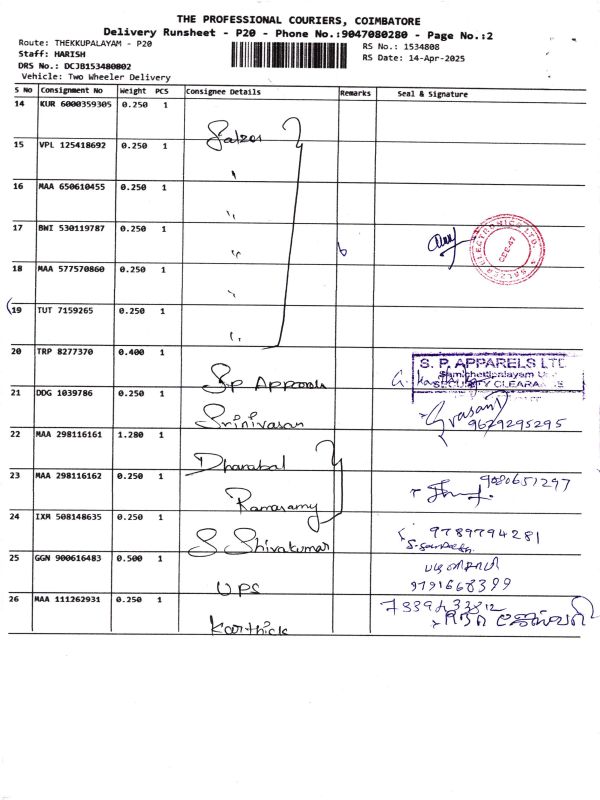 THE PROFESSIONAL COURIERS, COIMBATORE
Delivery Runsheet - P20 - Phone No.:9047080280 - Page No.:2
Route: THEKKUPALAYAM - P20
Staff: HARISH
DRS No.: DCJB153480802
Vehicle: Two Wheeler Delivery
RS No.: 1534808
RS Date: 14-Apr-2025
S No Consignment No Weight PCS Consignee Details Remarks Seal & Signature
14 KUR 6000359305 0.250 1
Salzer
15 VPL 125418692 0.250 1
"
16 MAA 650610455 0.250 1
"
17 BWI 530119787 0.250 1
" 6
SALZER ELECTRONICS LTD.
18 MAA 577570860 0.250 1
"
19 TUT 7159265 0.250 1
"
20 TRP 8277370 0.400 1
S.P Apparels
S. P. APPARELS LTD
SECURITY CLEARA
21 DDG 1039786 0.250 1
Srinivasan
9629295295
22 MAA 298116161 1.280 1
Dhanabal
23 MAA 298116162 0.250 1
Ramasamy
9080651297
24 IXM 508148635 0.250 1
S Shivakumar
9789794281
25 GGN 900616483 0.500 1
UPS
9791668399
26 MAA 111262931 0.250 1
Karthick